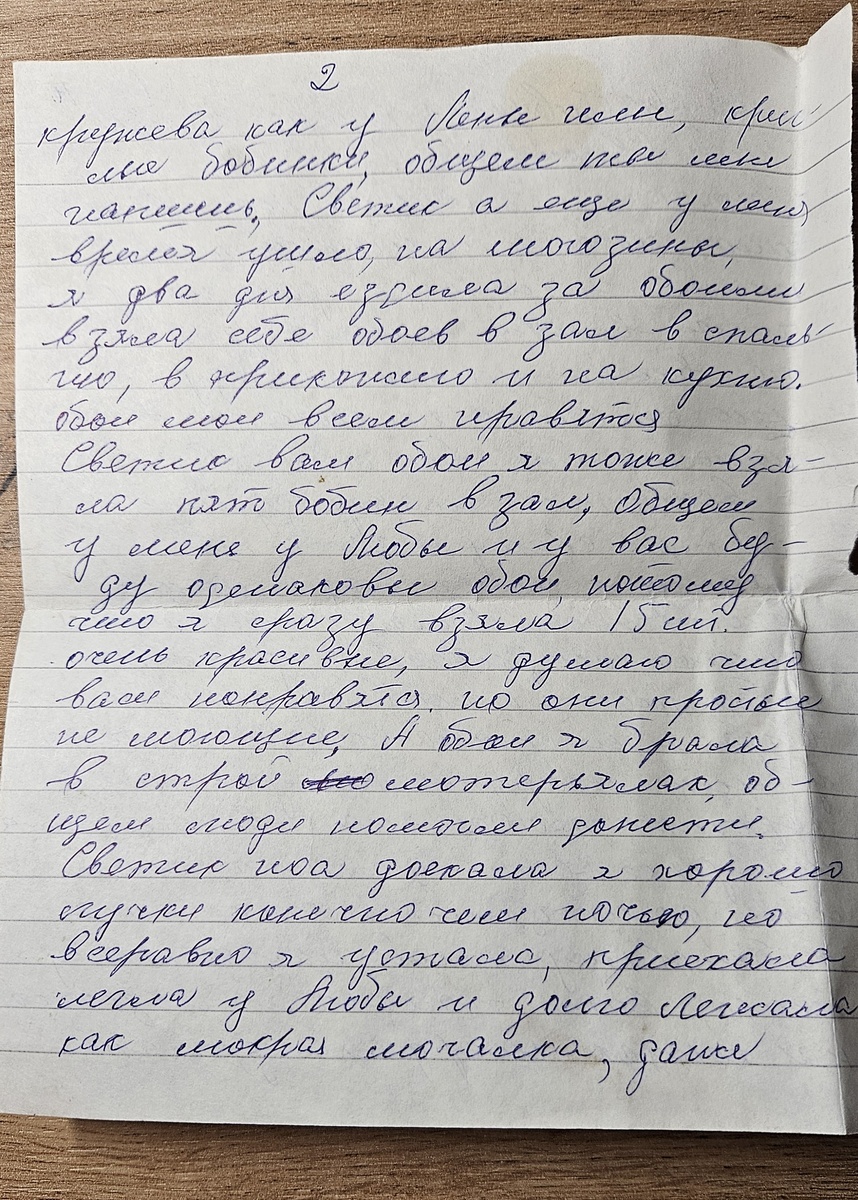 2
кружева как у Лены или, круп
ные бобинки, общем ты мне
напишишь. Светик а еще у меня
время ушло, на могозины,
я два дня ездила за обоями
взяла себе обоев в зал в спаль
ню, в прихожаю и на кухню.
обои мои всем нравятся
Светик вам обои я тоже взя-
ла пят бобин в зал, общем
у меня у Любы и у вас бу-
ду одинаковы обои, потому
что я сразу взяла 15 шт.
очень красивые, я думаю что
вам понравятся. но они простые
не моющие, А обои я брала
в строй мотерьялах, об-
щем люди помогли донести.
Светик доехала я хорошо
лучки конечно чем ночью, но
всеравно я устала, приехала
легла у Любы и долго Лежала
как мокрая мочалка, даже